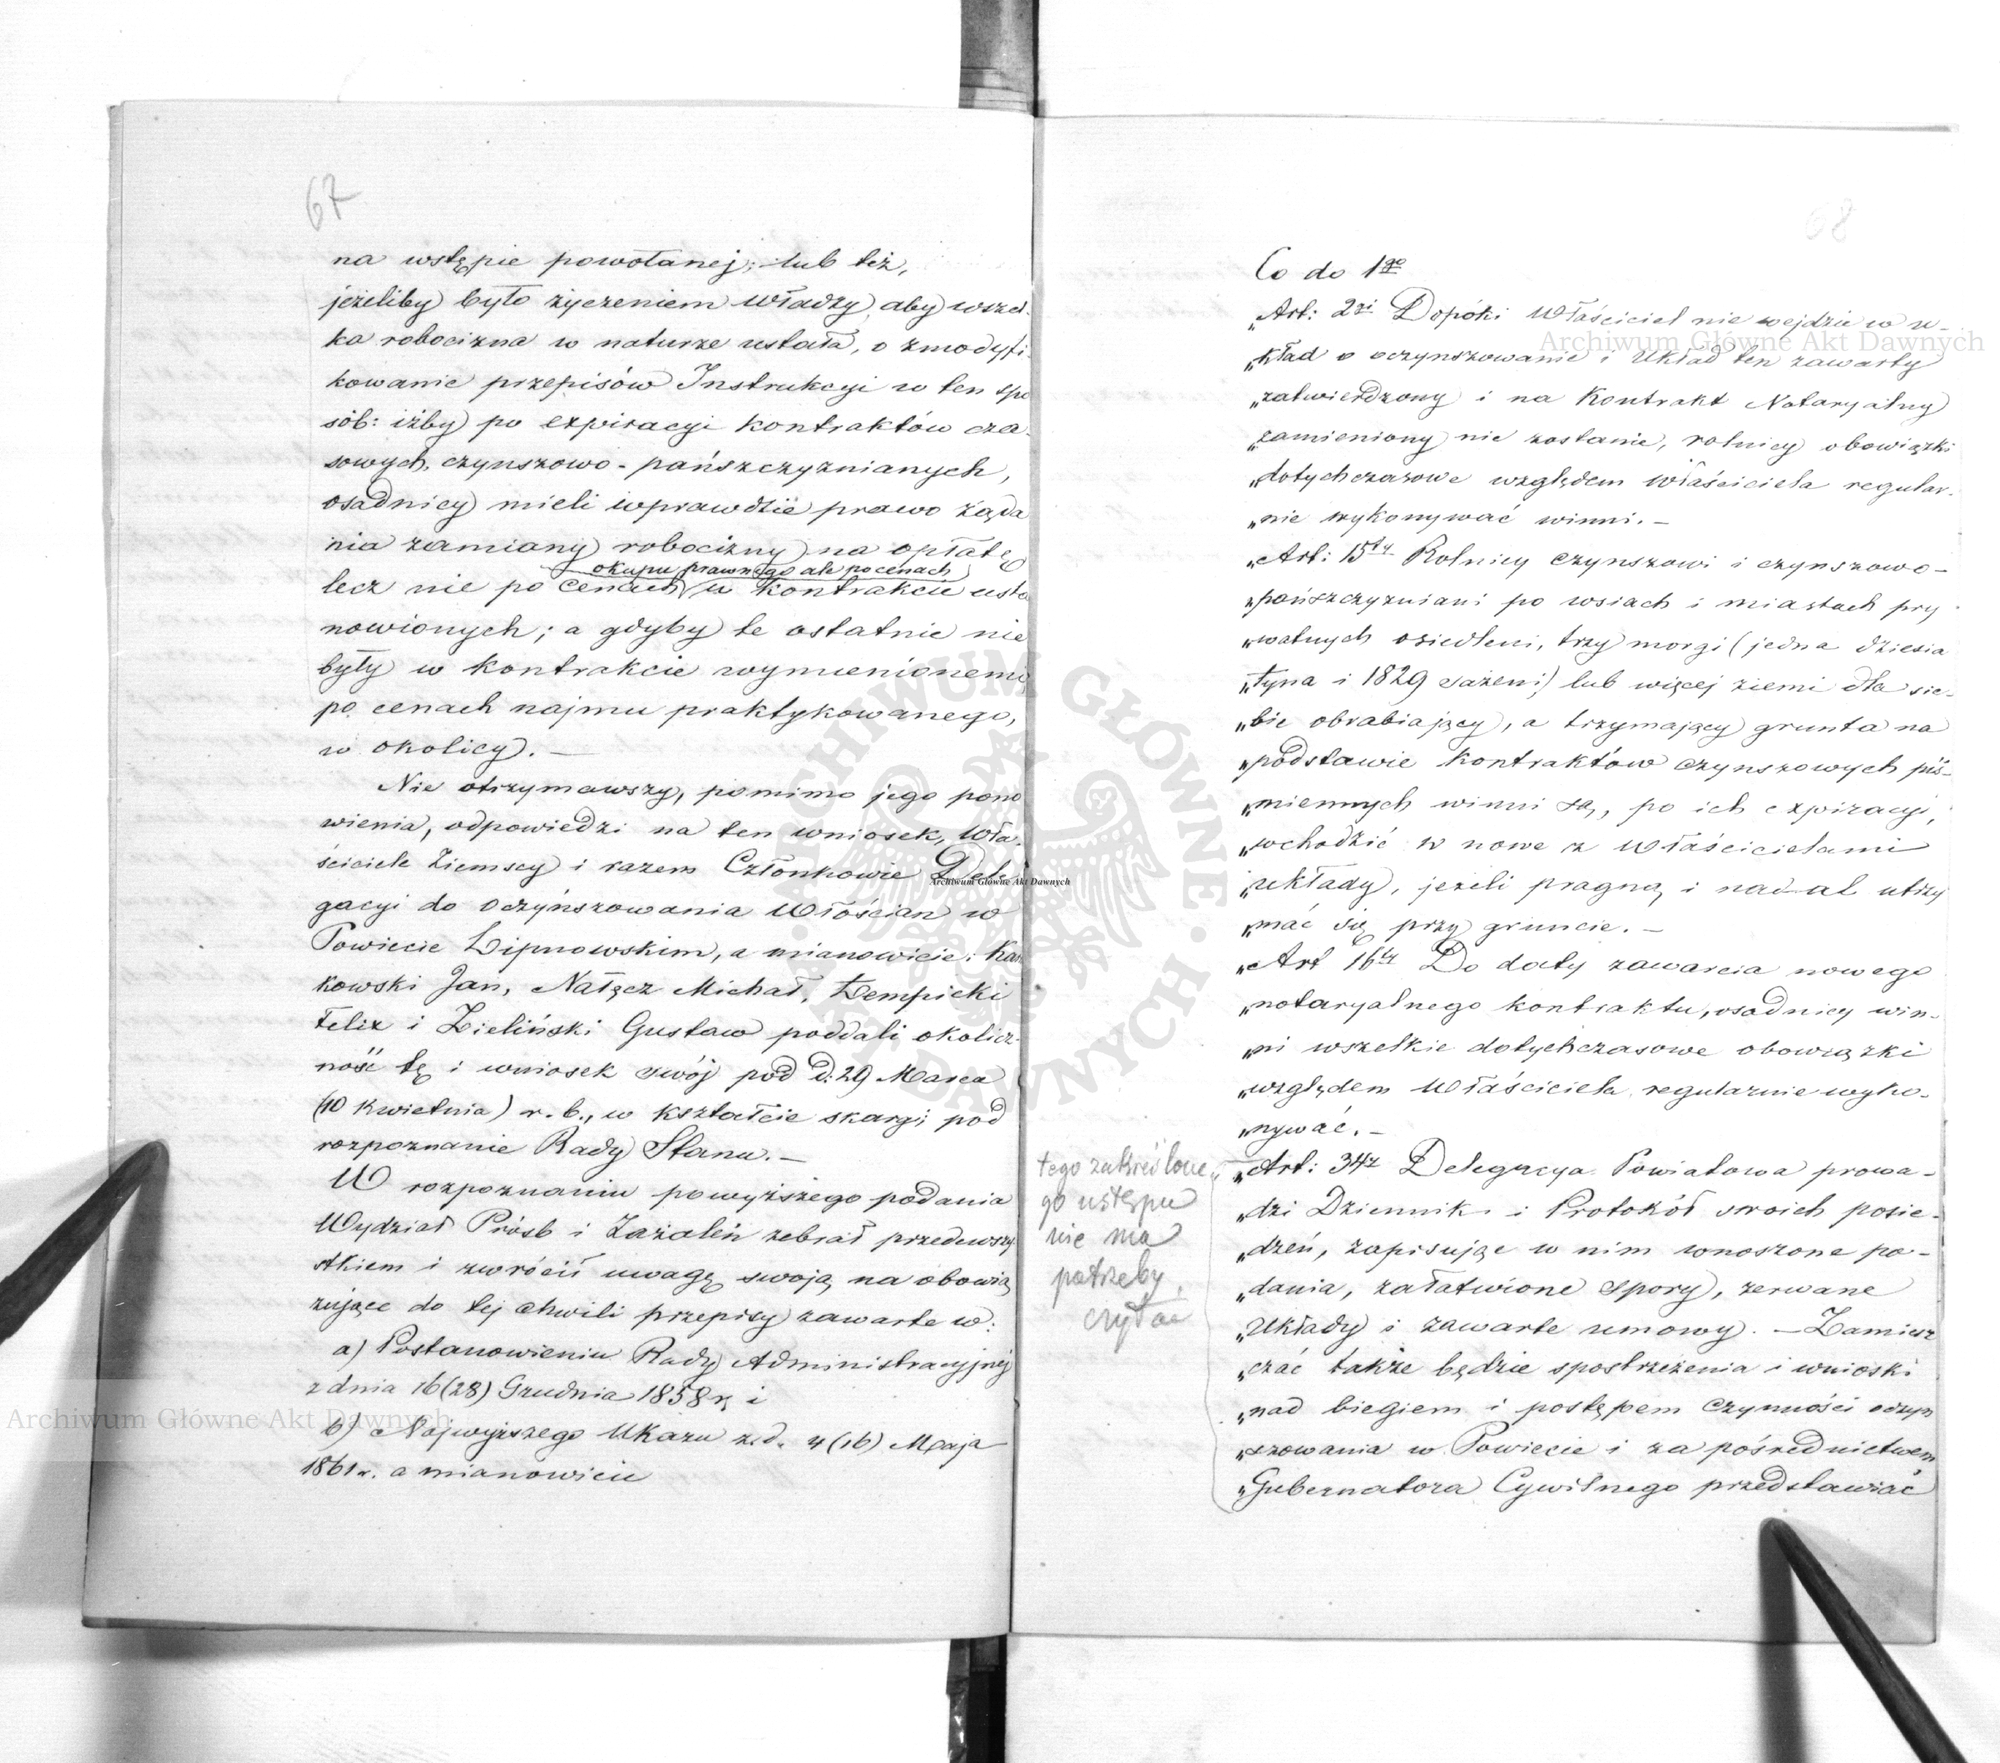 67
na wstępie powołanej; lub też,
jeżeliby było życzeniem Władzy, aby wszel-
ka robocizna w naturze ustała, o zmodyfi-
kowanie przepisów Instrukcyi w ten spo
sób: iżby po expiracyi kontraktów cza-
sowych, czynszowo-pańszczyznianych,
osadnicy mieli wprawdzie prawo żąda
nia zamiany robocizny na opłatę
okupu prawnego ale po cenach
lecz nie po cenach w kontrakcie usta
nowionych; a gdyby te ostatnie nie
były w kontrakcie wymienionemi,
po cenach najmu praktykowanego,
w okolicy. —
Nie otrzymawszy, pomimo jego pono
wienia, odpowiedzi na ten wniosek, Wła-
ściciele Ziemscy i razem Członkowie Dele
gacyi do Oczynszowania Włościan w
Powiecie Lipnowskim, a mianowicie:
kowski Jan, Nałęcz Michał, Dempicki
Felix i Zieliński Gustaw poddali okolicz-
ność tę i wniosek swój pod d. 29 Marca
(10 Kwietnia) r. b., w kształcie skargi, pod
rozpoznanie Rady Stanu. —
W rozpoznaniu powyższego podania
Wydział Próśb i Zażaleń zebrał przedewszy
stkiem i zwrócił uwagę swoją na obowią
zujące do tej chwili przepisy zawarte w:
a) Postanowieniu Rady Administracyjnej
z dnia 16 (28) Grudnia 1858 r, i
b) Najwyższego Ukazu z d. 4 (16) Maja
1861 r. a mianowicie
68
Co do 1go
„Art: 2gi Dopóki Właściciel nie wejdzie w u-
„kład o oczynszowanie i Układ ten zawarty
„zatwierdzony i na Kontrakt Notaryalny
„zamieniony nie zostanie, rolnicy obowiązki
„dotychczasowe względem Właściciela regular-
„nie wykonywać winni. —
„Art: 15ty Rolnicy czynszowi i czynszowo-
„pańszczyzniani po wsiach i miastach pry
„watnych osiedleni, trzy morgi (jedna dziesia
„tyna i 1829 sażeni) lub więcej ziemi dla sie-
„bie obrabiający, a trzymający grunta na
„podstawie Kontraktów czynszowych piś-
„miennych winni są, po ich expiracyi,
„wchodzić w nowe z Właścicielami
„układy, jeżeli pragną i nadal utrzy
„mać się przy gruncie. —
„Art 16ty Do daty zawarcia nowego
„notaryalnego kontraktu, osadnicy win-
„ni wszelkie dotychczasowe obowiązki
„względem Właściciela regularnie wyko-
„nywać. —
„Art: 34ty Delegacya Powiatowa prowa-
„dzi Dziennik i Protokół swoich posie-
„dzeń, zapisując w nim wnoszone po-
„dania, załatwione spory, zerwane
„Układy i zawarte umowy. — Zamiesz
„czać także będzie spostrzeżenia i wnioski
„nad biegiem i postępem czynności oczyn
„szowania w Powiecie i za pośrednictwem
„Gubernatora Cywilnego przedstawiać
tego zakreślone
go ustępu
nie ma
potrzeby
czytać
Archiwum Główne Akt Dawnych
Archiwum Główne Akt Dawnych
Archiwum Główne Akt Dawnych
ARCHIWUM GŁÓWNE AKT DAWNYCH